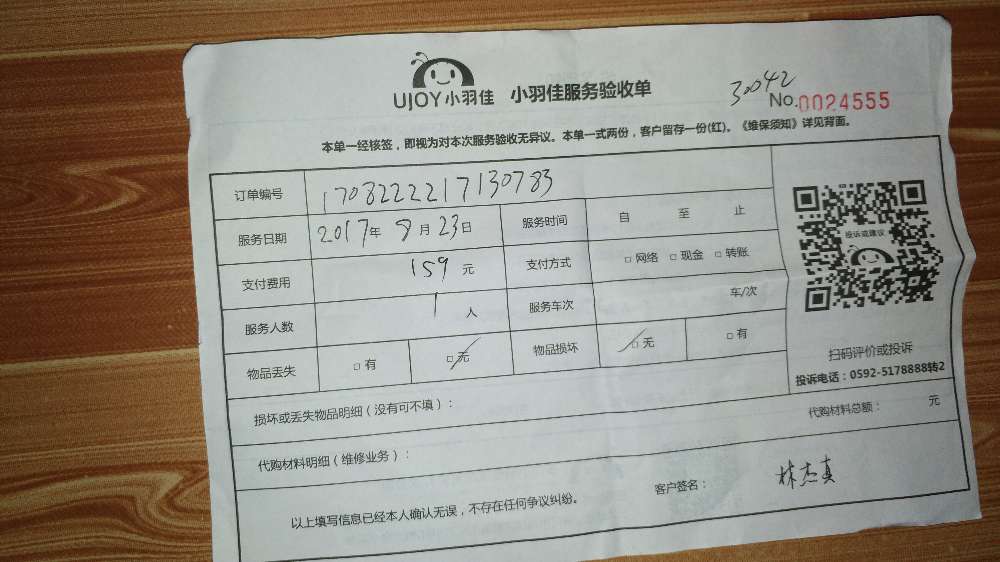 UJOY小羽佳 小羽佳服务验收单
30042
No.0024555
本单一经核签，即视为对本次服务验收无异议。本单一式两份，客户留存一份(红)。《维保须知》详见背面。
订单编号 1708222217130783
服务日期 2017年8月23日 服务时间 自 至 止
支付费用 159元 支付方式 □网络 □现金 □转账
服务人数 1人 服务车次 车/次
物品丢失 □有 □无 物品损坏 □无 □有
投诉或建议
扫码评价或投诉
投诉电话：0592-5178888转2
损坏或丢失物品明细（没有可不填）：
代购材料明细（维修业务）： 代购材料总额： 元
以上填写信息已经本人确认无误，不存在任何争议纠纷。 客户签名： 林杰真